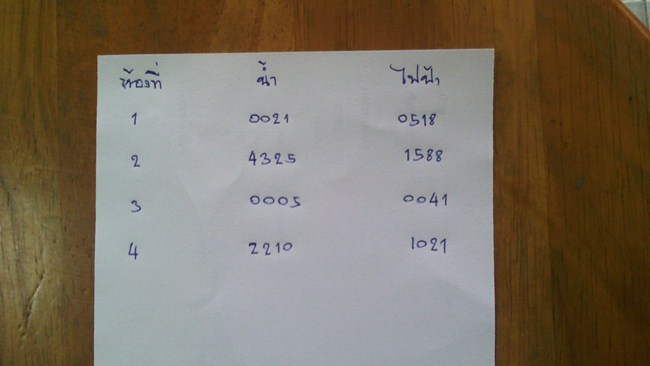 ห้องที่ น้ำ ไฟฟ้า
1 0021 0518
2 4325 1588
3 0005 0041
4 2210 1021